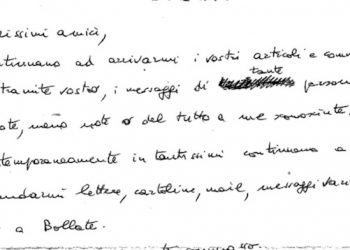 rissimi amici,
ntinuano ad arrivarmi i vostri articoli e comm
tante
tramite vostro, i messaggi di person
ote, meno note o del tutto a me sconosciute.
temporaneamente in tantissimi continuano a
andarmi lettere, cartoline, mail, messaggi vari
a Bollate.